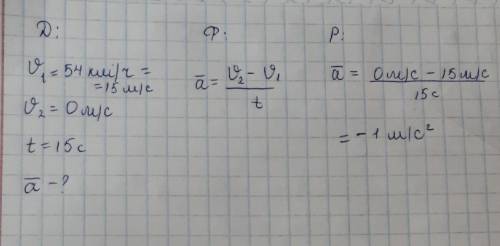 Д:
V₁ = 54 км/ч =
= 15 м/с
V₂ = 0 м/с
t = 15 с
a̅ - ?
Ф:
a̅ = (V₂ - V₁) / t
Р:
a̅ = (0 м/с - 15 м/с) / 15 с
= - 1 м/с²